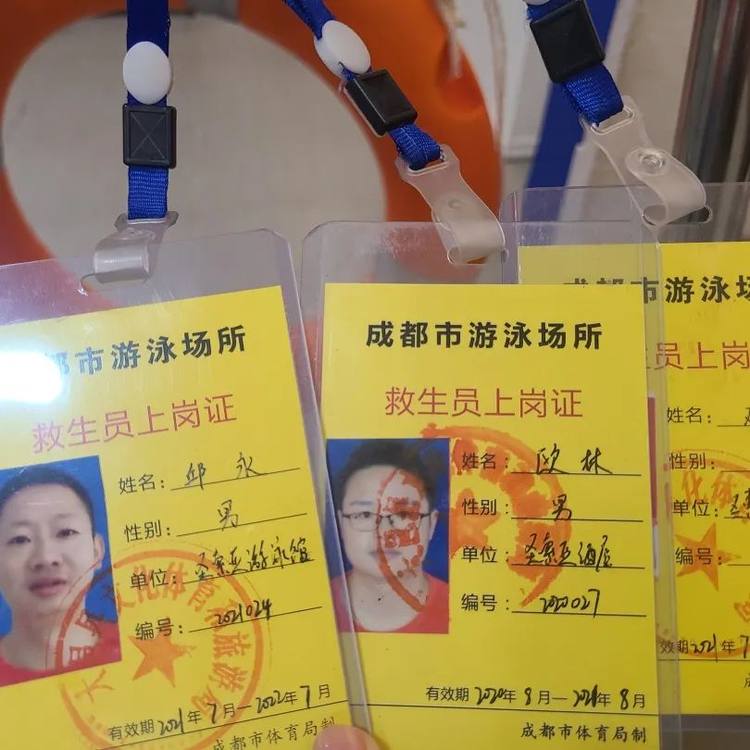 都市游泳场所
救生员上岗证
姓名：邱永
性别：男
单位：圣索亚游泳馆
编号：2021024
有效期2021年7月—2022年7月
成都市体育局制
成都市游泳场所
救生员上岗证
姓名：欧林
性别：男
单位：圣索亚酒店
编号：2020027
有效期2020年8月—2021年8月
成都市体育局制
都市游泳场
员上岗
姓名：
性别：
单位：
编号：
效期2021年7